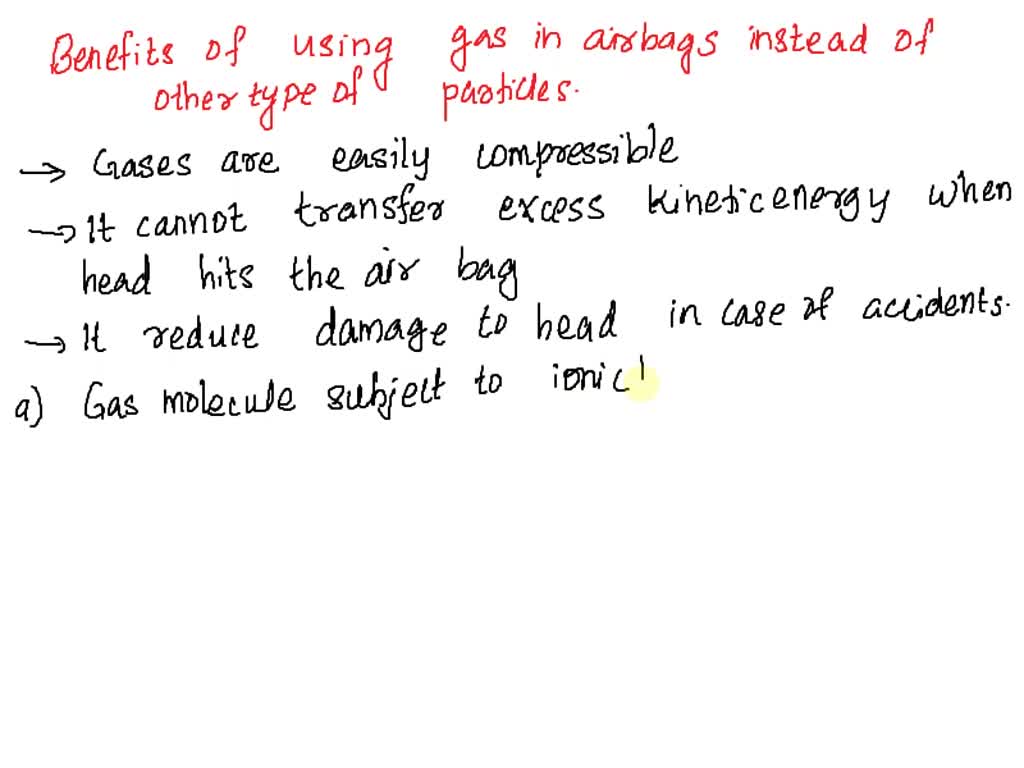 Benefits of using gas in airbags instead of
other type of particles.
→ Gases are easily compressible
→ It cannot transfer excess kinetic energy when
head hits the air bag
→ It reduce damage to head in case of accidents.
a) Gas molecule subject to ionic